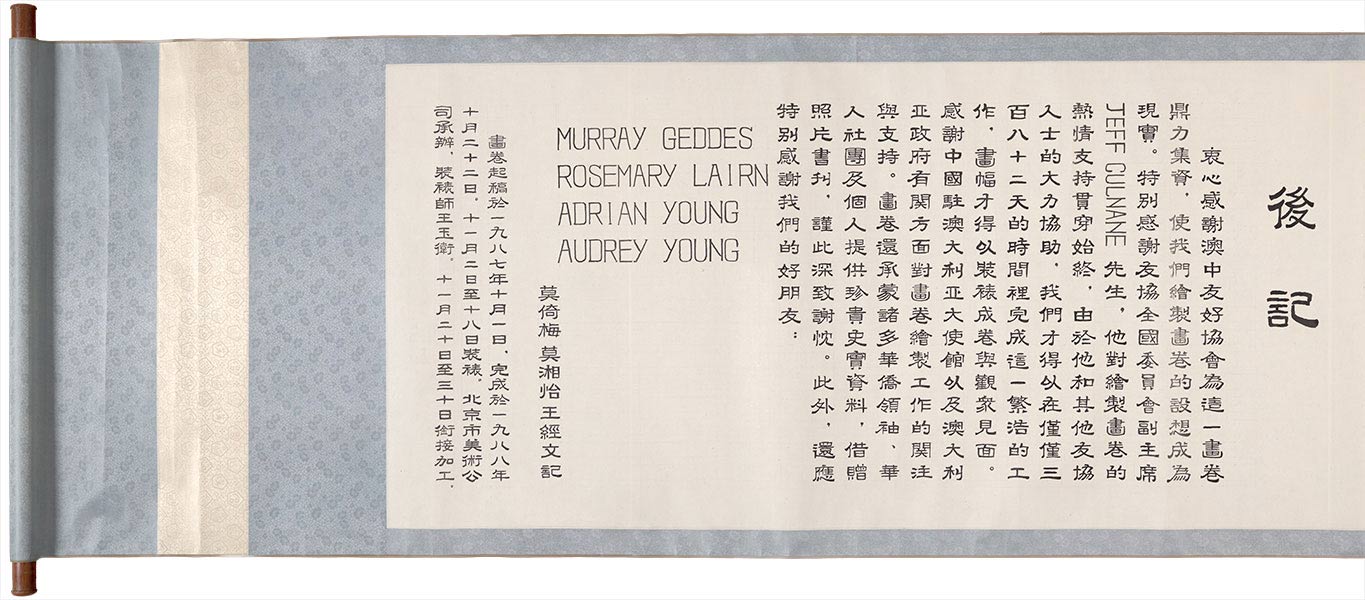 後記
衷心感謝澳中友好協會為這一畫卷
鼎力集資，使我們繪製畫卷的設想成為
現實。特別感謝友協全國委員會副主席
JEFF CULNANE 先生，他對繪製畫卷的
熱情支持貫穿始終，由於他和其他友協
人士的大力協助，我們才得以在僅僅三
百八十二天的時間裡完成這一繁浩的工
作，畫幅才得以裝裱成卷與觀眾見面。
感謝中國駐澳大利亚大使館以及澳大利
亚政府有関方面對畫卷繪製工作的関注
與支持。畫卷還承蒙諸多華僑領袖、華
人社團及個人提供珍貴史實資料，借贈
照片書刋，謹此深致謝忱。此外，還應
特別感謝我們的好朋友：
MURRAY GEDDES
ROSEMARY LAIRN
ADRIAN YOUNG
AUDREY YOUNG
莫倚梅 莫湘怡 王經文 記
畫卷起稿於一九八七年十月一日，完成於一九八八年
十月二十二日。十一月二日至十八日裝裱。北京市美術公
司承辦，裝裱師王玉衛。十一月二十日至三十日銜接加工。